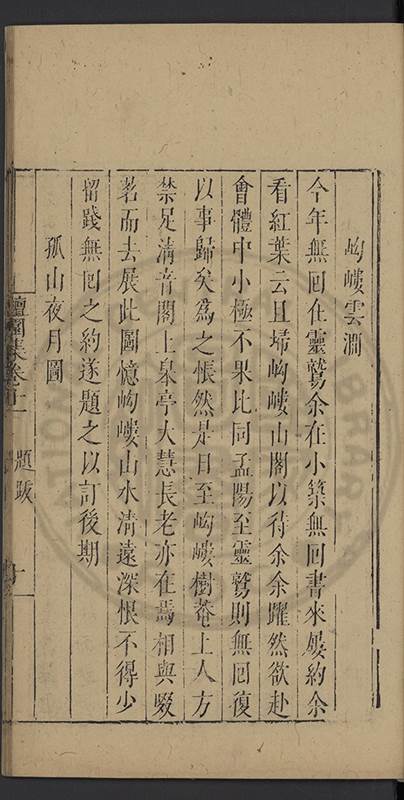 岣嶁雲澗
今年無回在靈鷲余在小築無回書來屢約余
看紅葉云且埽岣嶁山閣以待余余躍然欲赴
會體中小極不果比同孟陽至靈鷲則無回復
以事歸矣為之悵然是日至岣嶁樹菴上人方
禁足清音閣上皋亭大慧長老亦在焉相與啜
茗而去展此圖憶岣嶁山水清遠深悵不得少
留踐無回之約遂題之以訂後期
孤山夜月圖
檀園集卷十一 題跋